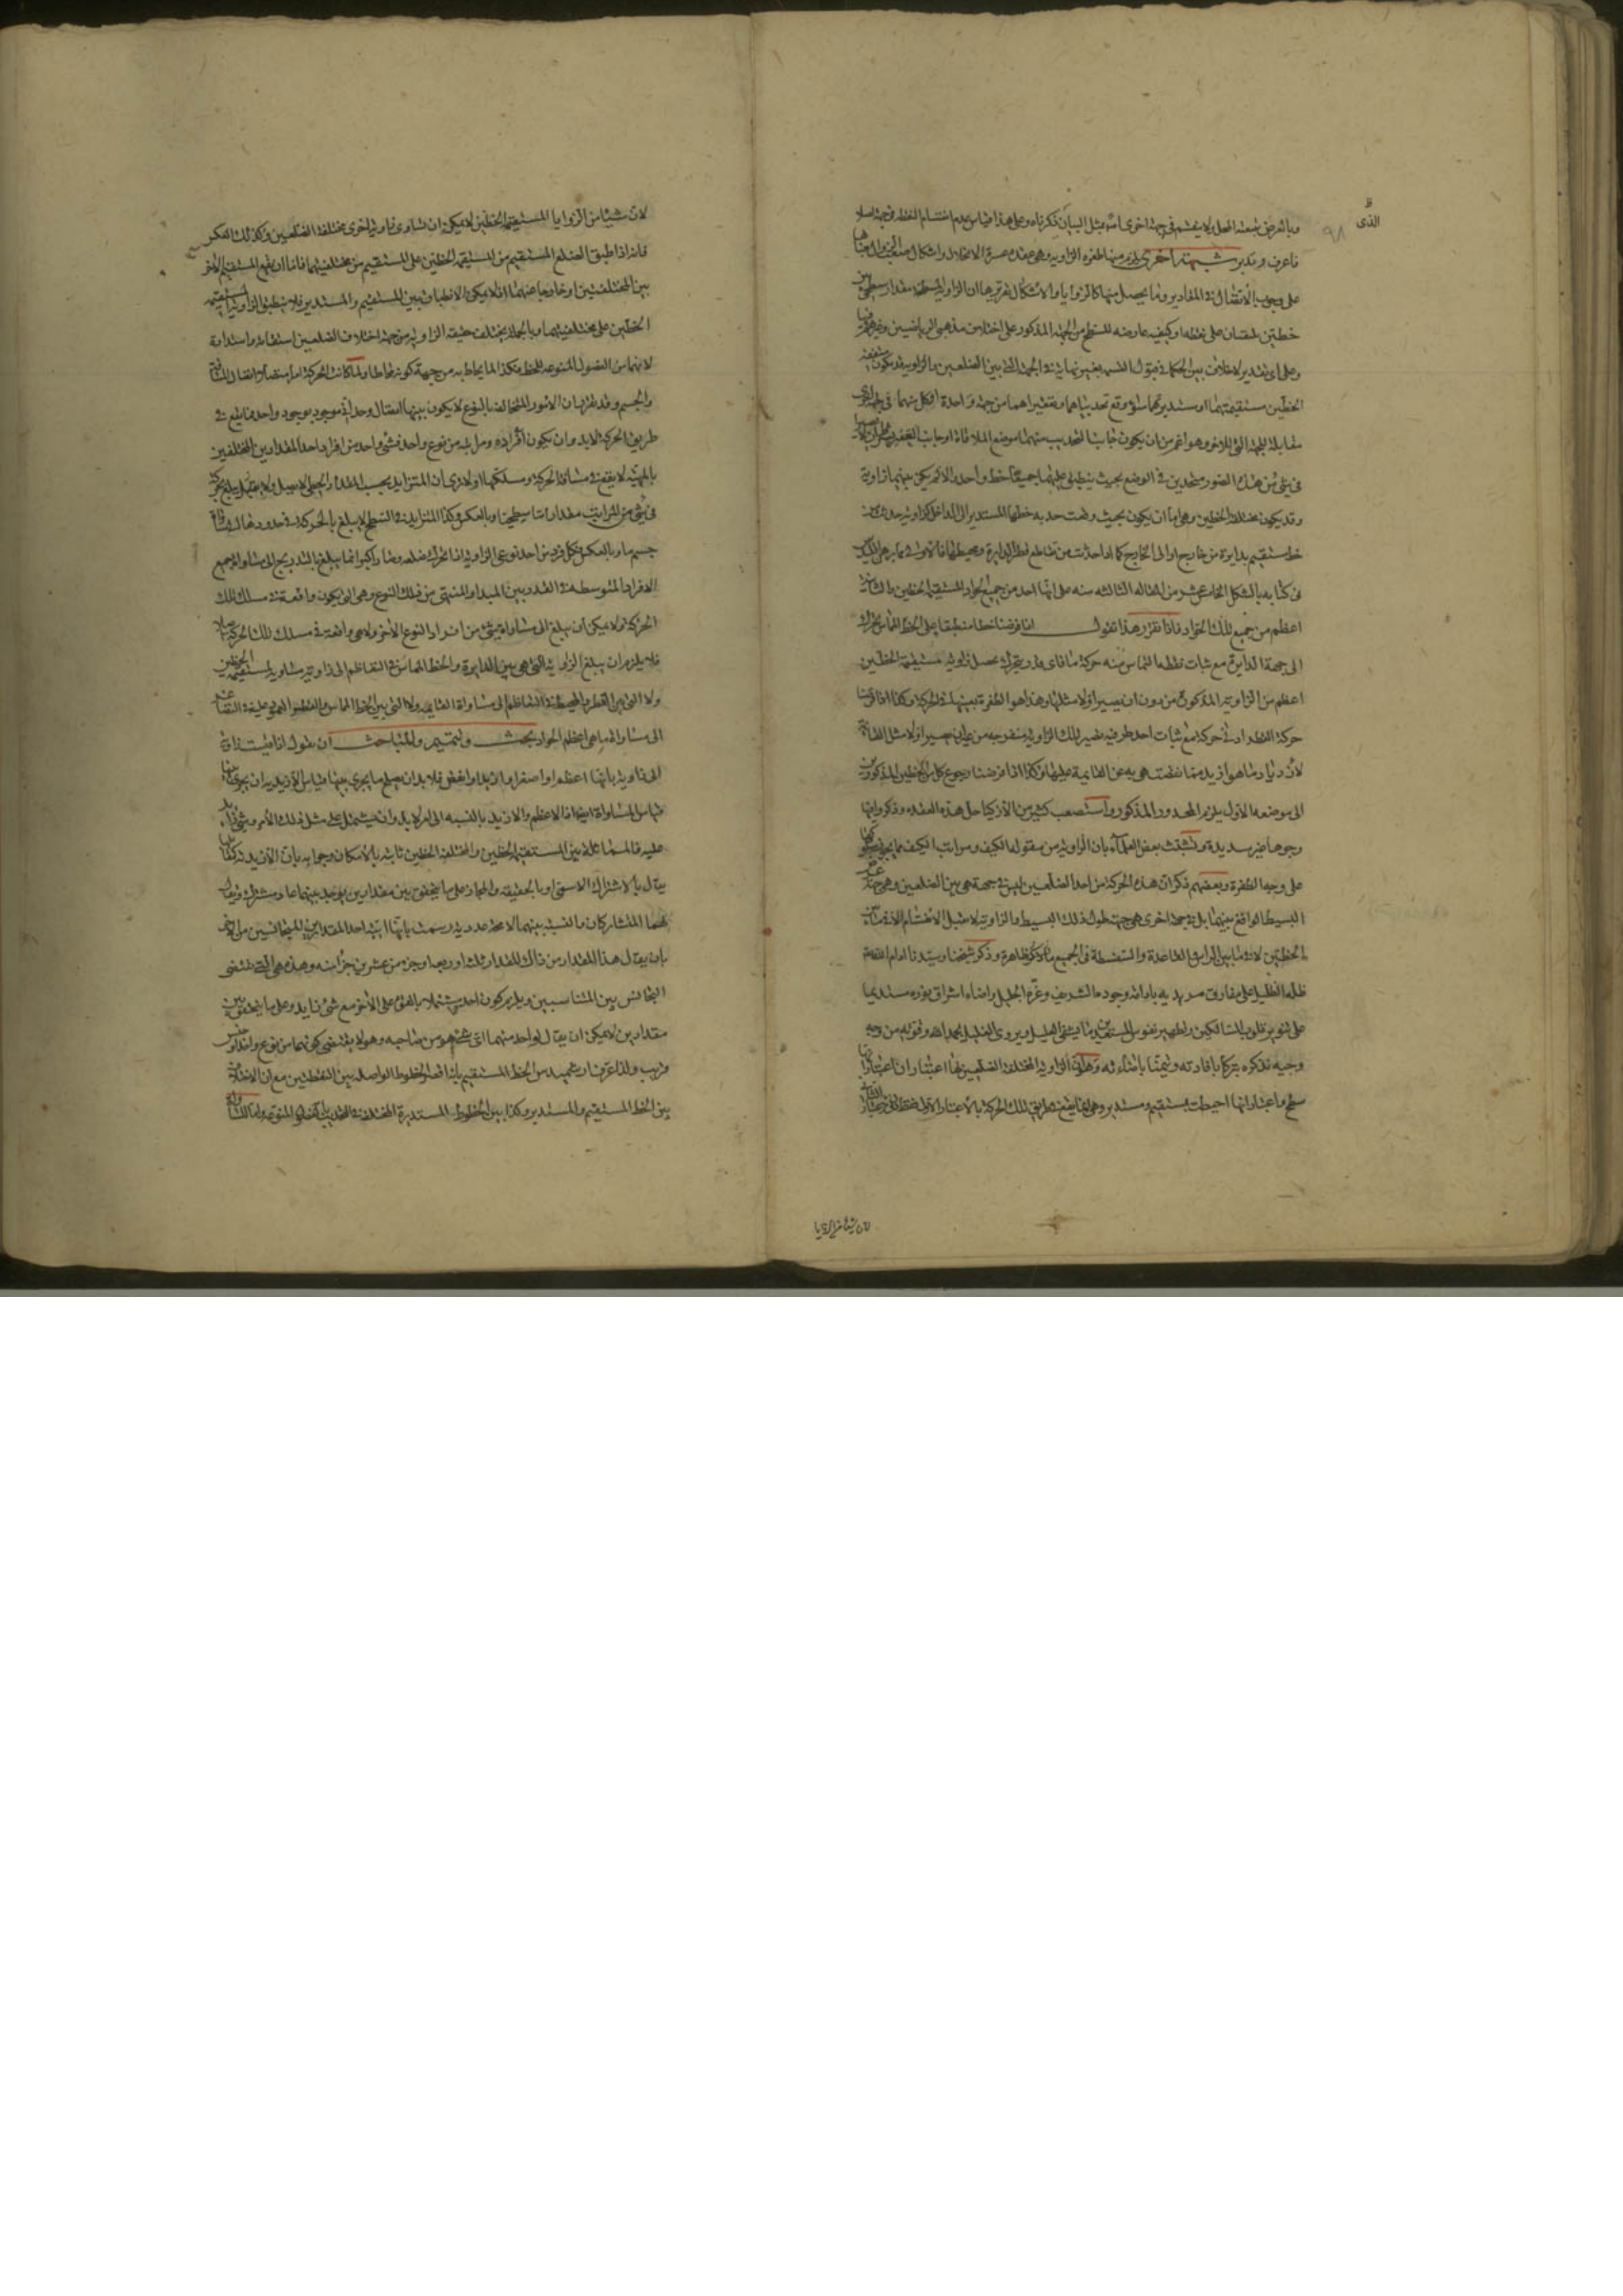 الذى
٩٨
وبالعرض بتبعية المحل ولا ينقسم فى جهة اخرى اما بمثل البيان ذكرناه وعلى هذا قياس عدم انقسام النقطه فى جهة اصلا
فاعرف وتدبر شبهة اخرى يلزم منها طفره الزاويه وهى عقده عسرة الانحلال واشكال صعب
على وجوب الاتصال فى المقادير وما يحصل منها كالزوايا والاشكال تقريرها ان الزاوية المسطحه مقدار سطحى بين
خطين يلتقيان على نقطه او كيفيه عارضه للسطح من الجهة المذكور على اختلاف مذهبى الرياضيين وغيرهم
وعلى اى تقدير لا خلاف بين الحكما فى قبول القسمه بغير نهاية فى الجهة التى بين الضلعين والزاويه قد يكون
الخطين مستقيمتهما او مستديرتهما سواء وقع تحديباهما وتقعيراهما من جهة واحدة او كل منهما فى
مقابلة للجهة التى للاخر وهو اعم من ان يكون جانب التحديب منهما موضع الملاقاة او جانب التقعير
فى شئ من هذه الصور متحدين فى الوضع بحيث ينطبق عليهما جميعا خط واحد والا لم يكن بينهما زاوية
وقد يكون مختلفة الخطين وهى اما ان يكون بحيث وقعت حدبه خطها المستدير الى الداخل كزاويه حدثت من
خط مستقيم بدايرة من خارج او الى الخارج كما اذا حدثت من تقاطع قطر الدايرة ومحيطها فالاولى مما برهن اقليدس
فى كتابه بالشكل الخامس عشر من المقاله الثالثه منه على انها احد من جميع الحواد المستقيمة الخطين والثانيه
اعظم من جميع تلك الحواد فاذا تقرر هذا نقول اذا فرضنا خطا منطبقا على الخط المماس يتحرك
الى جهة الدايرة مع ثبات نقطه التماس منه حركة ما فاى قدر يتحرك يحصل زاويه مستقيمة الخطين
اعظم من الزاويه المذكورة من دون ان يصير اولا مثلها وهذا هو الطفرة بعينها فى الحركة وكذا اذا فرضنا
حركة القطر ادنى حركة مع ثبات احد طرفيه تصير تلك الزاوية منفرجه من غير ان يصير اولا مثل القائمة
لازدياد ما هو ازيد مما نقصت هى به عن القايمة عليها وكذا اذا فرضنا رجوع كل من الخطين المذكورين
الى موضعه الاول يلزم المحدور المذكور واستصعب كثير من الاذكيا حل هذه العقده وذكروا فيها
وجوها غير سديدة وتشبث بعض العلماء بان الزاويه من مقولة الكيف ومراتب الكيف مما يجرى
على وجه الطفرة وبعضهم ذكر ان هذه الحركة من احد الضلعين ليس فى جهة هى بين الضلعين وهى جهة
البسيط الواقع بينهما بل فى جهة اخرى هى جهة طول ذلك البسيط والزاوية لا تقبل الانقسام الا فيما بين
الخطين لا فيما بين الراس والقاعدة والسفسطة فى الجميع ما ذكر ظاهرة وذكر شيخنا وسيدنا ادام الله
ظله الظليل على مفارق مريديه بادامة وجوده الشريف وعزه الجليل واضاء اشراق نوره مستديما
على تنوير قلوب السالكين وتطهير نفوس المستعدين ما يشفى العليل ويروى الغليل بحمد الله وقوته من وجه
وجيه نذكره تبركا بافادته وتيمنا بانشاءه وهو ان الزاوية المختلفة الضلعين لها اعتباران اعتبار انها
سطح واعتبار انها احيطت بمستقيم ومستدير وهى انما يقع فى طريق تلك الحركة بالاعتبار الاول فقط
لان شيئا من الزوايا
لان شيئا من الزوايا المستقيمة الخطين لا يمكن ان تساوى زاوية اخرى مختلفة الضلعين وكذلك العكس
فانه اذا طبق الضلع المستقيم من المستقيمة الخطين على المستقيم من مختلفتهما فاما ان يقع المستقيم الاخر
بين المختلفتين او خارجا عنهما اذ لا يمكن الانطباق بين المستقيم والمستدير فلا ينطبق الزاوية المستقيمة
الخطين على مختلفتهما وبالجملة يختلف حقيقه الزاويه من جهة اختلاف الضلعين استقامة واستدارة
لانهما من الفصول المنوعه للخط وكذا لما يحاط به من جهة كونه محاطا ولما كانت الحركة امرا متصلا اتصال المسافة
والجسم وقد تقرر ان الامور المتخالفة بالنوع لا يكون بينها اتصال وحدانى موجود بوجود واحد فما يقع فى
طريق الحركة لابد وان يكون افراده ومراتبه من نوع واحد فشئ واحد من افراد احد المقدارين المختلفين
بالمهية لا يقع فى مسافة الحركة ومسلكها اولا ترى ان المتزايد بحسب المقدار الخطى لا يصل ولا يبلغ بحركته
فى شئ من المراتب مقدارا ما سطحيا وبالعكس وكذا المتزايد فى السطح لا يبلغ بالحركة فى حدودها الى
جسم ما وبالعكس فكل فرد من احد نوعى الزاوية اذا تحرك ضلعه وصار اكبر انما يبلغ بالتدريج الى مساواة جميع
الافراد المتوسطة فى القدر بين المبدا والمنتهى من ذلك النوع وهى التى يكون واقعة فى مسلك تلك
الحركة ولا يمكن ان يبلغ الى مساواة شئ من افراد النوع الاخر ولا هى واقعة فى مسلك تلك الحركة اصلا
فلا يلزم ان يبلغ الزاوية التى هى بين الدايرة والخط المماس فى التعاظم الى زاوية مساوية لمستقيمة الخطين
ولا التى بين القطر والمحيط فى التعاظم الى مساواة القايمه ولا التى بين الخط المماس والقطر العمود عليه فى التصاغر
الى مساواة ما هى اعظم الحواد بحث وتتميم وللباحث ان يقول اذا قيست زاوية
الى زاوية بانها اعظم او اصغر او ازيد او انقص فلابد ان يصح ما يجرى بينها قياس الازيديه ان يجرى بينها
قياس المساواة ايضا اذ الاعظم والازيد بالنسبه الى امر لابد وان يشتمل على مثل ذلك الامر وشئ زايد
عليه فالمماثلة بين المستقيمة الخطين والمختلفة الخطين ثابته بالامكان وجوابه بان الازيد
يقال بالاشتراك الاسمى او بالحقيقه والمجاز على ما يتحقق بين مقدارين يوجد بينهما عاد مشترك ويقال
لهما المتشاركان والنسبة بينهما لا محه عدديه ورسمت بانها اية احد المقدارين المتجانسين من الاخر
بان يقال هذا المقدار من ذاك المقدار ثلث او ربع او جزء من عشرين جزا منه وهذه هى التى تقتضى
التجانس بين المتناسبين ويلزم كون احد مشتملا بالقوة على الاخر مع شئ زايد وعلى ما يتحقق بين
مقدارين لا يمكن ان يقال لواحد منهما اى شئ هو من صاحبه وهو لا يقتضى كونهما من نوع واحد او جنس
قريب ولذا عرف ارشميدس الخط المستقيم بانه اقصر الخطوط الواصله بين النقطتين مع ان الاختلاف
بين الخط المستقيم والمستدير وكذا بين الخطوط المستديرة المختلفة فى التحديب بالفصول المنوعه